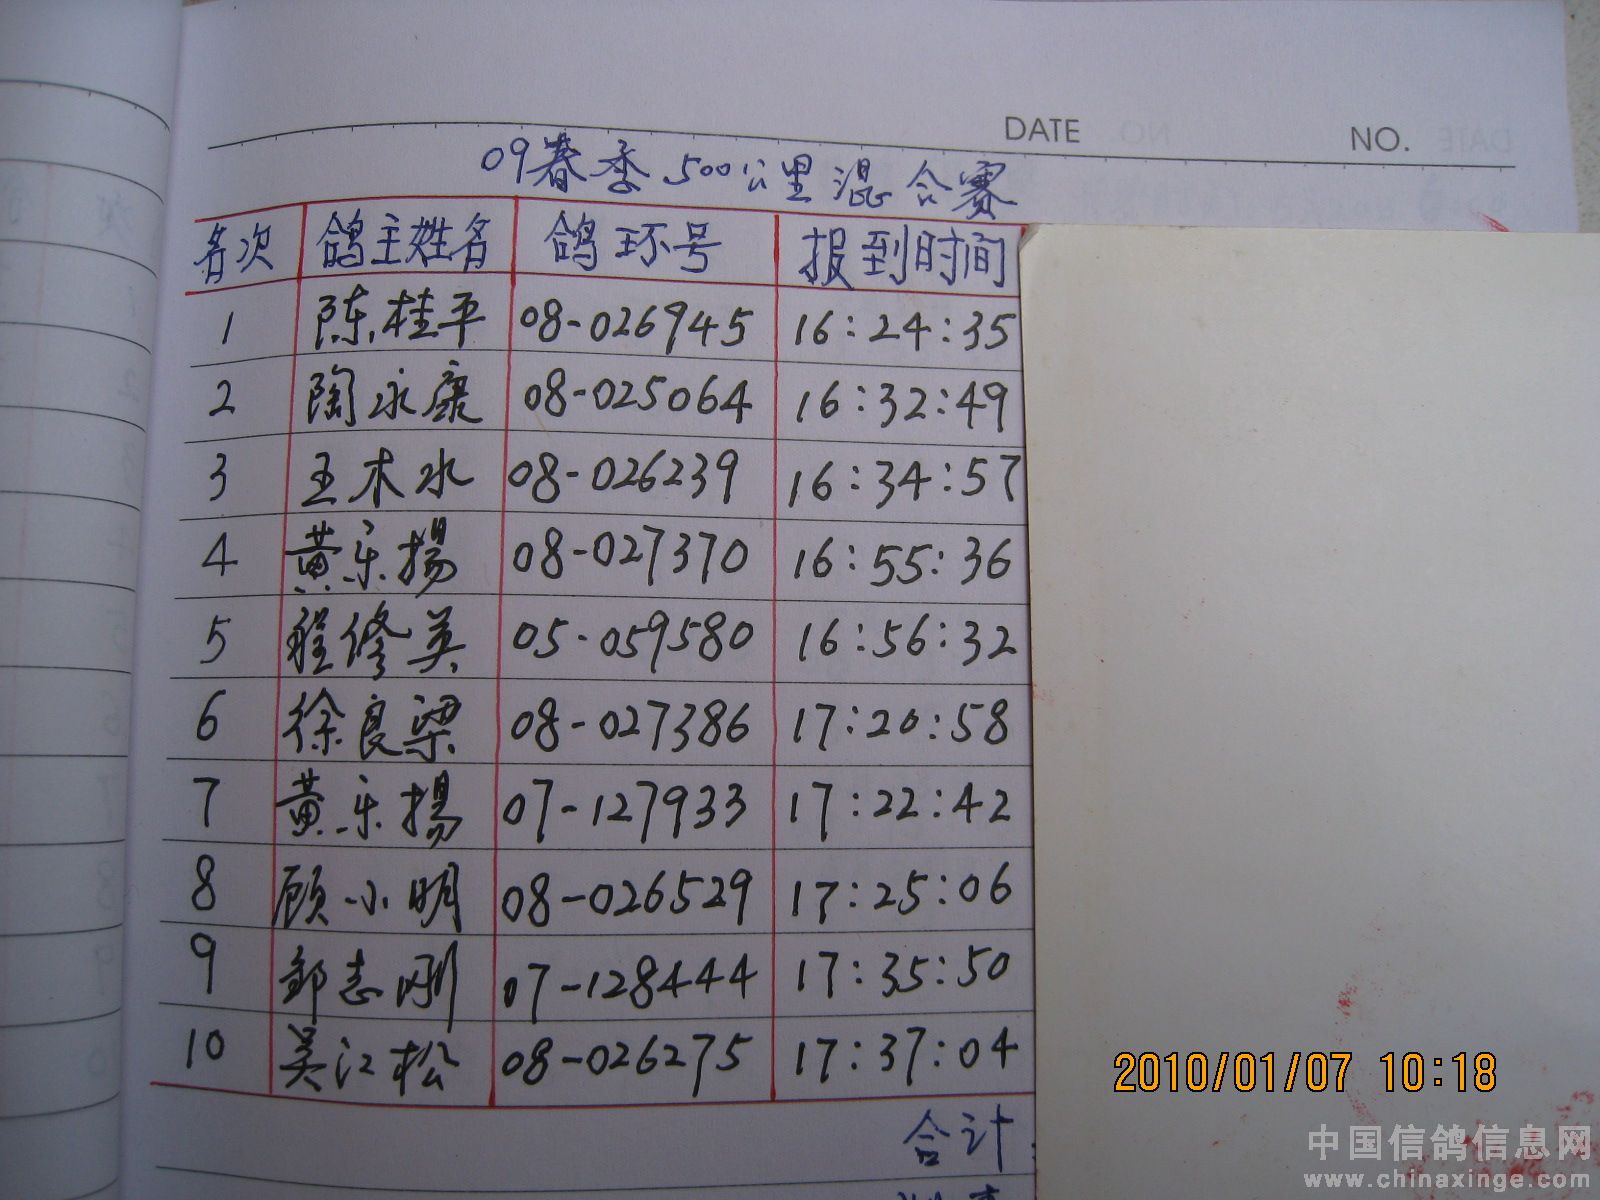 DATE NO.
09春季500公里混合赛
名次 鸽主姓名 鸽环号 报到时间
1 陈桂平 08-026945 16:24:35
2 陶永康 08-025064 16:32:49
3 王木水 08-026239 16:34:57
4 黄乐揚 08-027370 16:55:36
5 程修英 05-059580 16:56:32
6 徐良梁 08-027386 17:20:58
7 黄乐揚 07-127933 17:22:42
8 顾小明 08-026529 17:25:06
9 邹志刚 07-128444 17:35:50
10 吴江松 08-026275 17:37:04
合计:
2010/01/07 10:18
中国信鸽信息网
www.chinaxinge.com